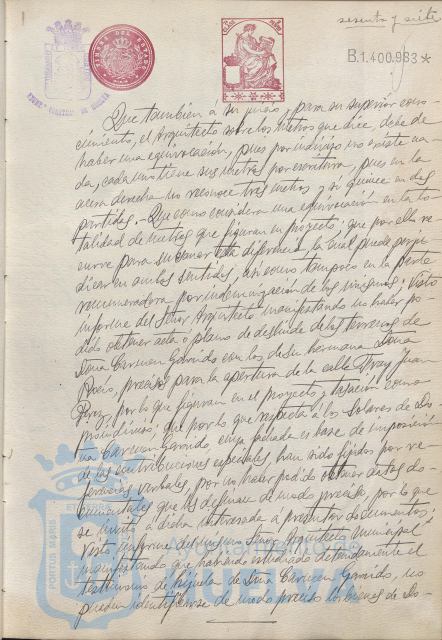 sesenta y siete
TIMBRE DEL ESTADO
B.1.400.983*
Que tambien á su juicio y para su superior cono-
cimiento, el Arquitecto sobre los metros que dice, debe de
haber una equivocación, pues por indiviso no existe na-
da, cada uno tiene sus metros por escritura, pues en la
acera derecha no reconoce tres metros y si quince en dos
partidas. Que como considera una equivocacion en la to-
talidad de metros que figuran en proyecto; que por ella re-
curre para subsanar esta diferencia, la cual puede perju-
dicar en ambos sentidos, asi como tampoco en la parte
remuneradora por indemnización de los mismos; Visto
informe del Señor Arquitecto manifestando no haber po-
dido obtener acta ó plano de deslinde de los terrenos de
Doña Carmen Garrido con los de su hermana Doña
Rocio, preciso para la apertura de la calle Fray Juan
Perez, por lo que figuran en el proyecto y tasación como
proindiviso; que por lo que respecta á los solares de Do-
ña Carmen Garrido, cuya fachada es base de imposición
de las contribuciones especiales, han sido fijados por re-
ferencias verbales, por no haber podido obtener datos do-
cumentales que las definan de modo preciso, por lo que
se invitó á dicha interesada á presentar documentos;
Visto informe del mismo Señor Arquitecto Municipal
manifestando que habiendo estudiado detenidamente el
testimonio de hijuela de Doña Carmen Garrido, no
pueden identificarse de modo preciso los bienes de Do-
Ayuntamiento de
Huelva
PORTUS MARIS